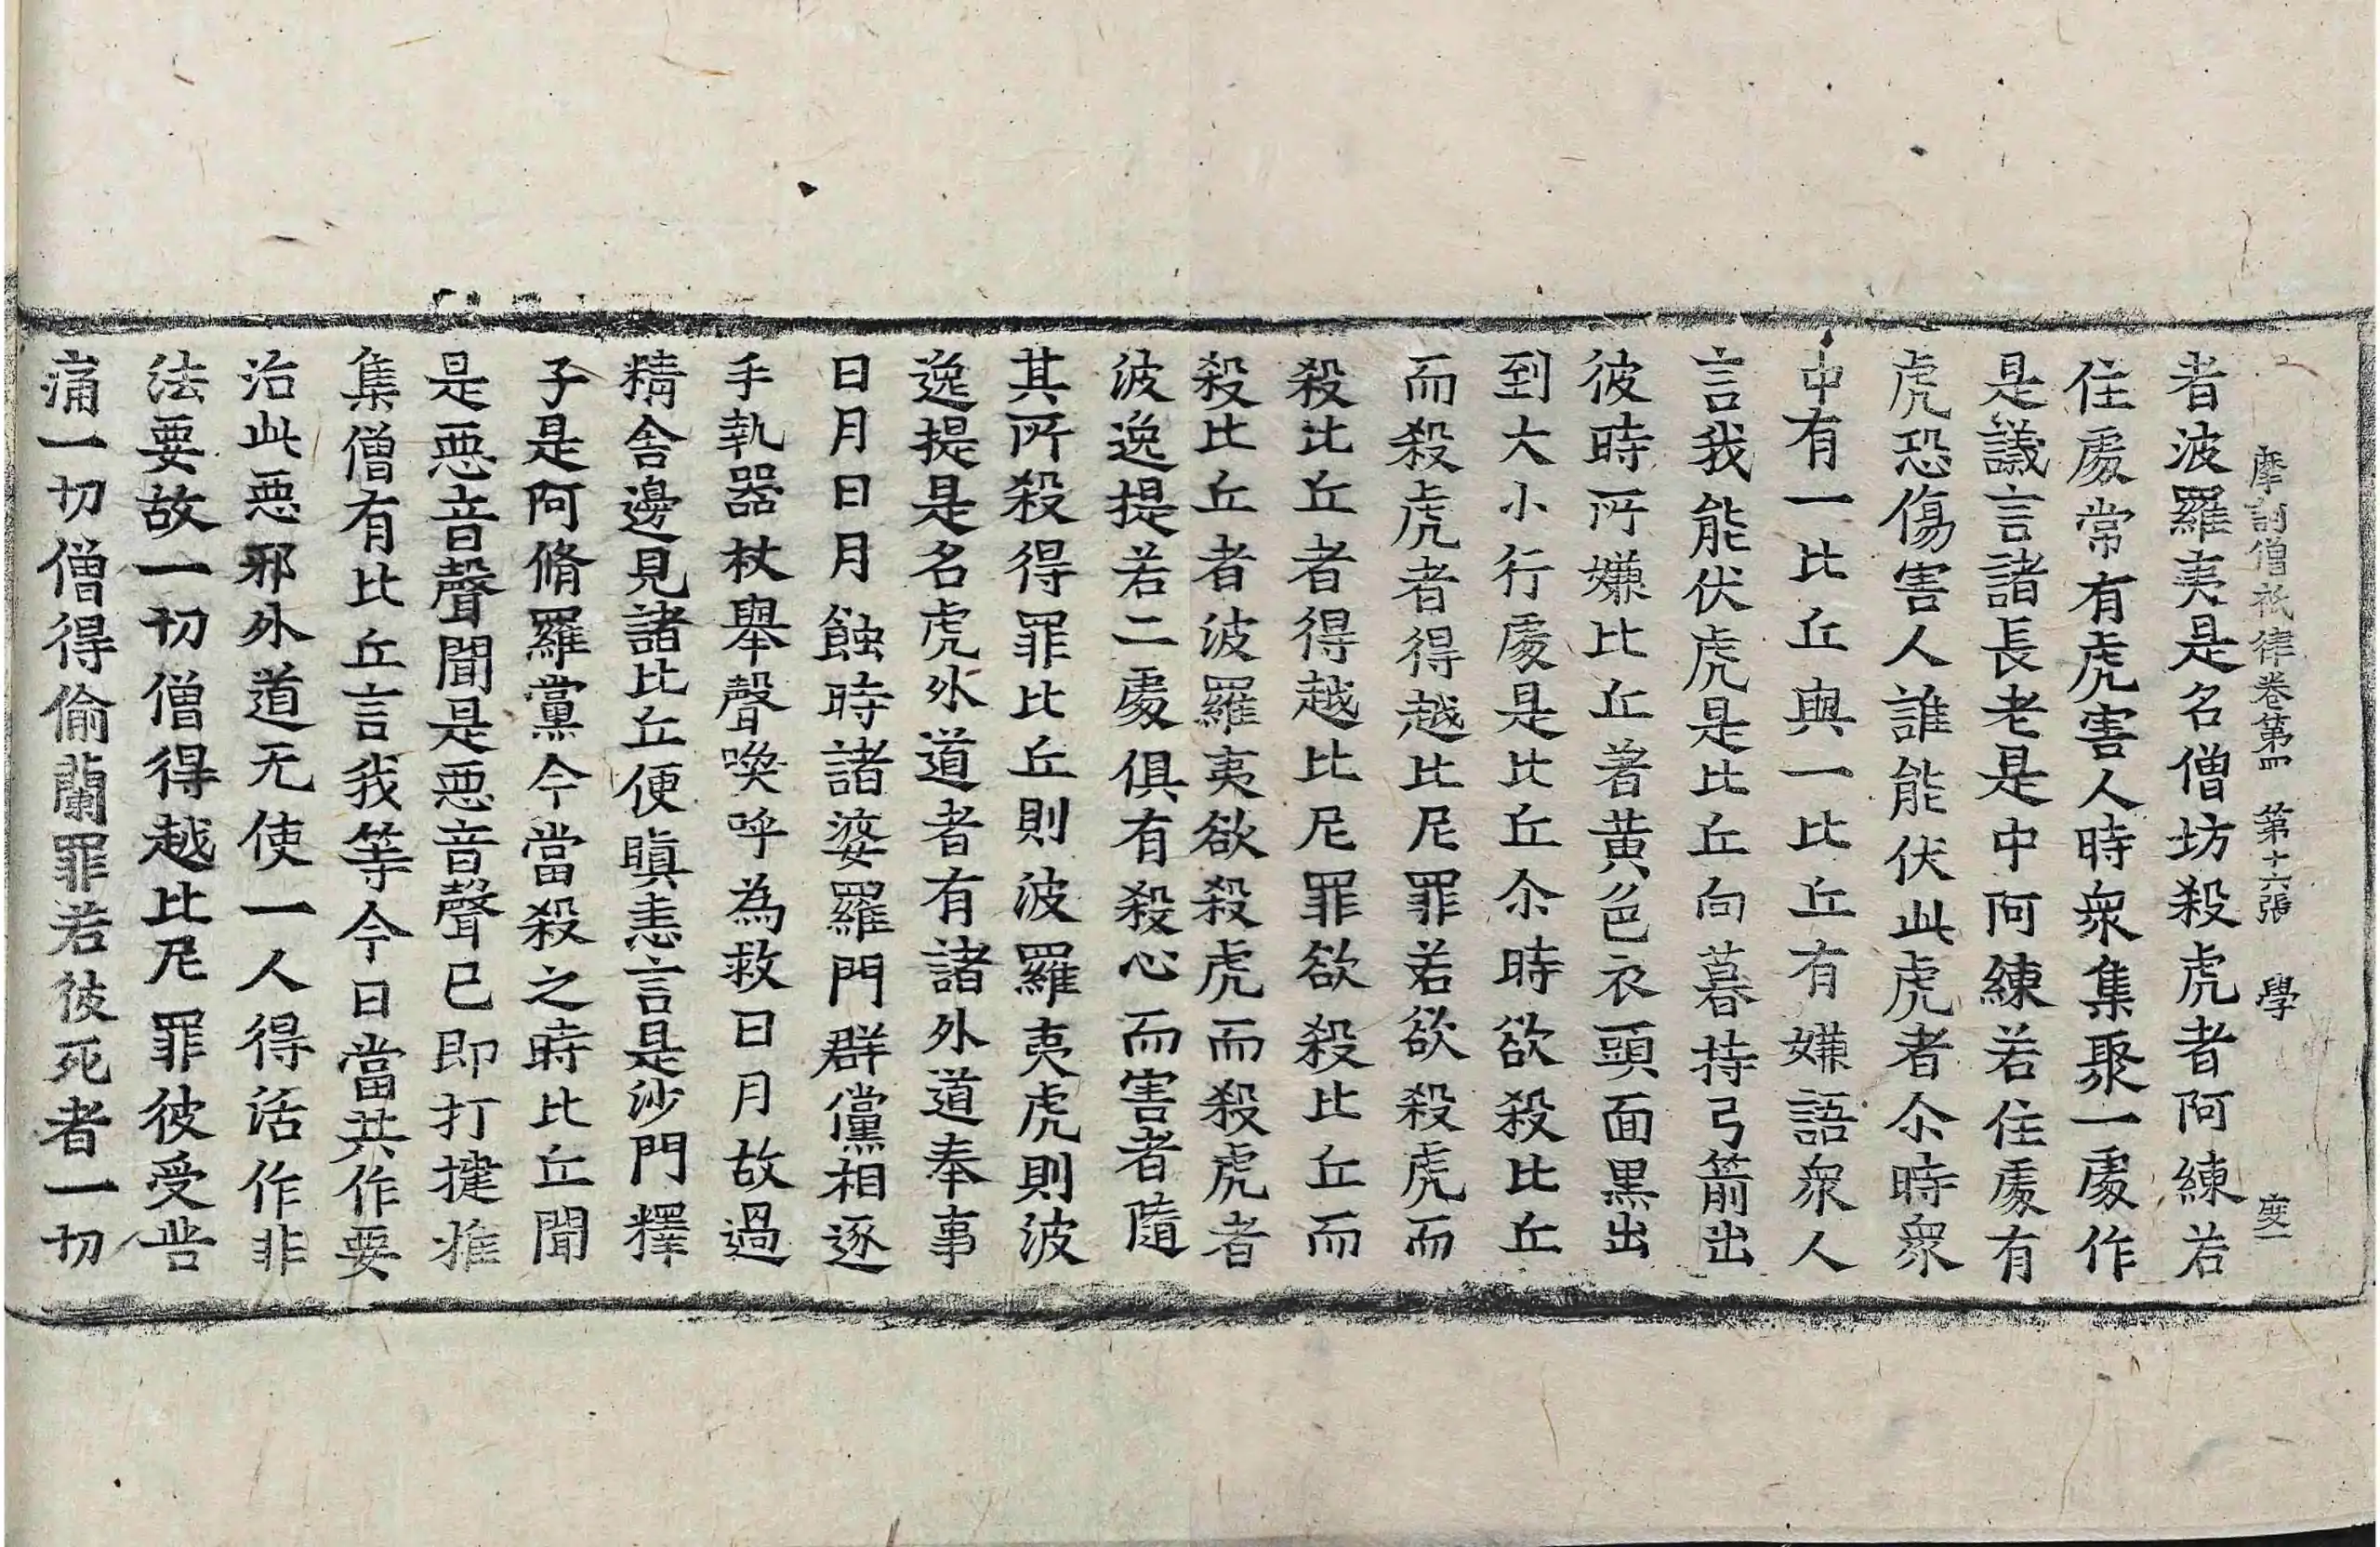 摩訶僧祇律卷第四 第十六張 學 度一
者波羅夷是名僧坊殺虎者阿練若
住處常有虎害人時衆集聚一處作
是議言諸長老是中阿練若住處有
虎恐傷害人誰能伏此虎者尒時衆
中有一比丘與一比丘有嫌語衆人
言我能伏虎是比丘向暮持弓箭出
彼時所嫌比丘著黃色衣頭面黑出
到大小行處是比丘尒時欲殺比丘
而殺虎者得越比尼罪若欲殺虎而
殺比丘者得越比尼罪欲殺比丘而
殺比丘者波羅夷欲殺虎而殺虎者
波逸提若二處俱有殺心而害者隨
其所殺得罪比丘則波羅夷虎則波
逸提是名虎外道者有諸外道奉事
日月日月蝕時諸婆羅門群儻相逐
手執器杖舉聲喚呼為救日月故過
精舍邊見諸比丘便瞋恚言是沙門釋
子是阿脩羅黨今當殺之時比丘聞
是惡音聲聞是惡音聲已即打揵推
集僧有比丘言我等今日當共作要
治此惡邪外道无使一人得活作非
法要故一切僧得越比尼罪彼受苦
痛一切僧得偷蘭罪若彼死者一切